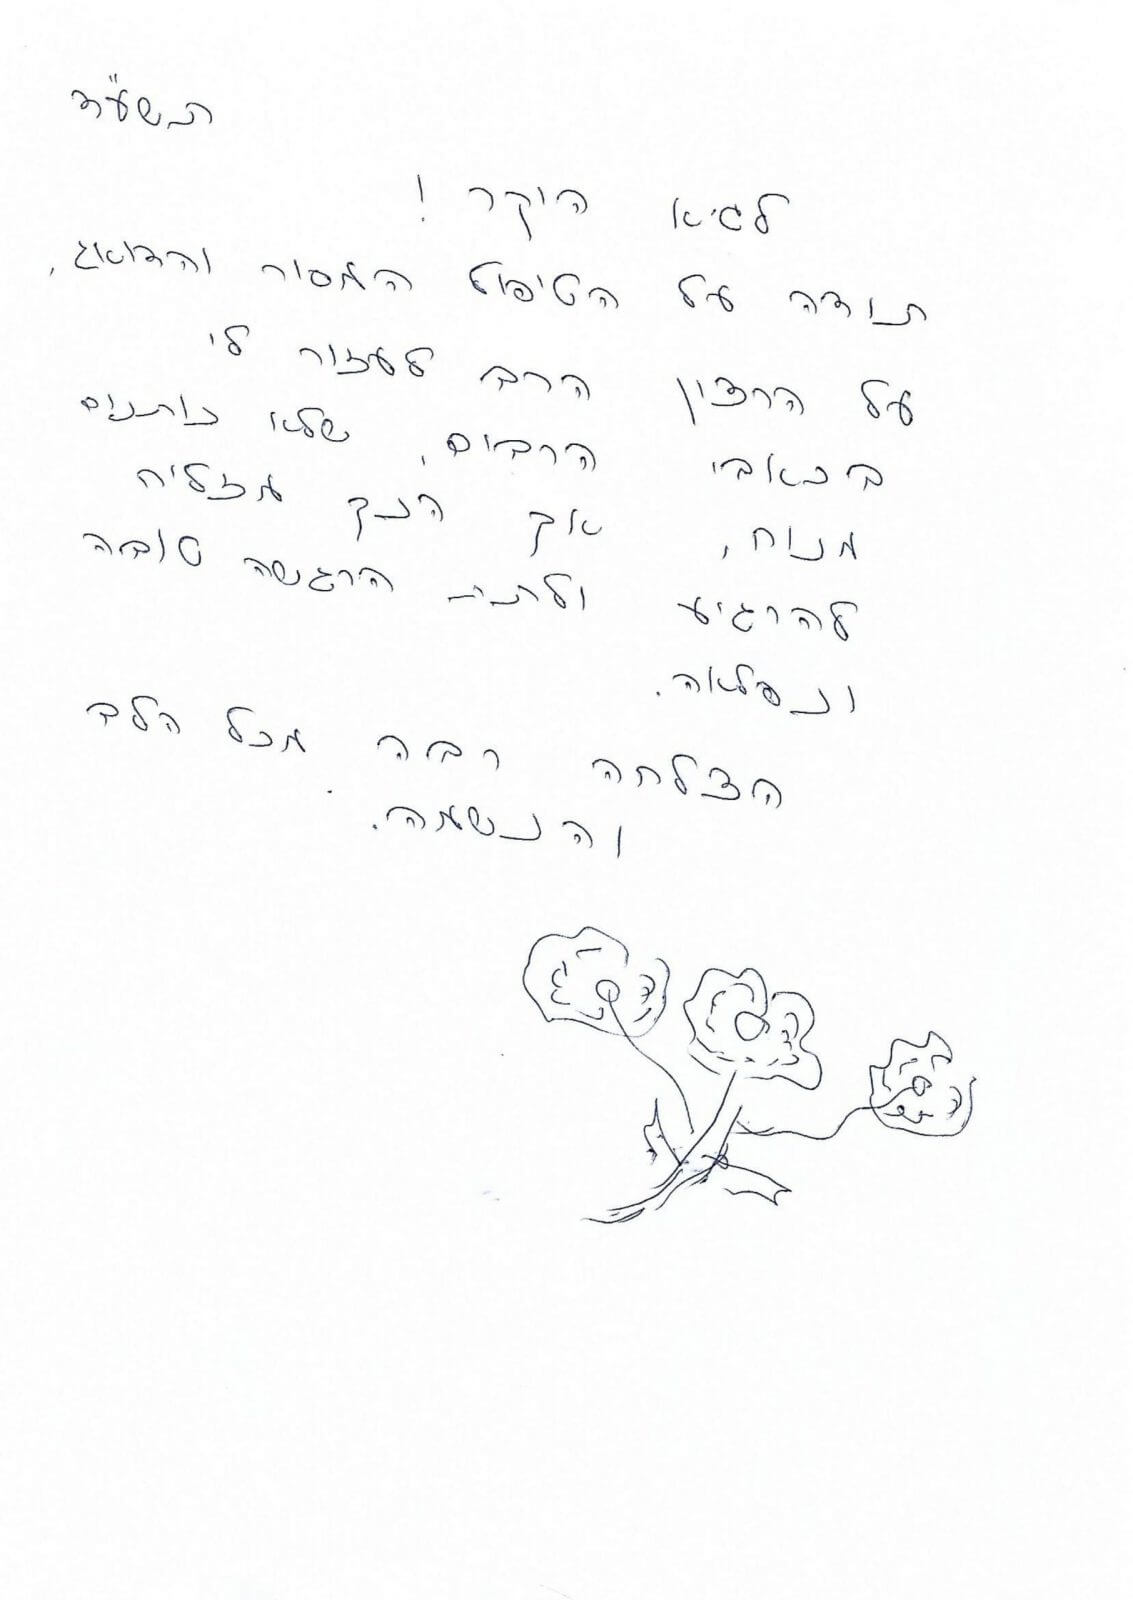 תשע"ד
לגיא היקר !
תודה על הטיפול המסור והדואג,
על הרצון הרב לעזור לי
בכאבי הרבים, שלא נותנים
מנוח, אך הנך מצליח
להרגיע ולתת הרגשה טובה
ונפלאה.
הצלחה רבה מכל הלב
והנשמה.